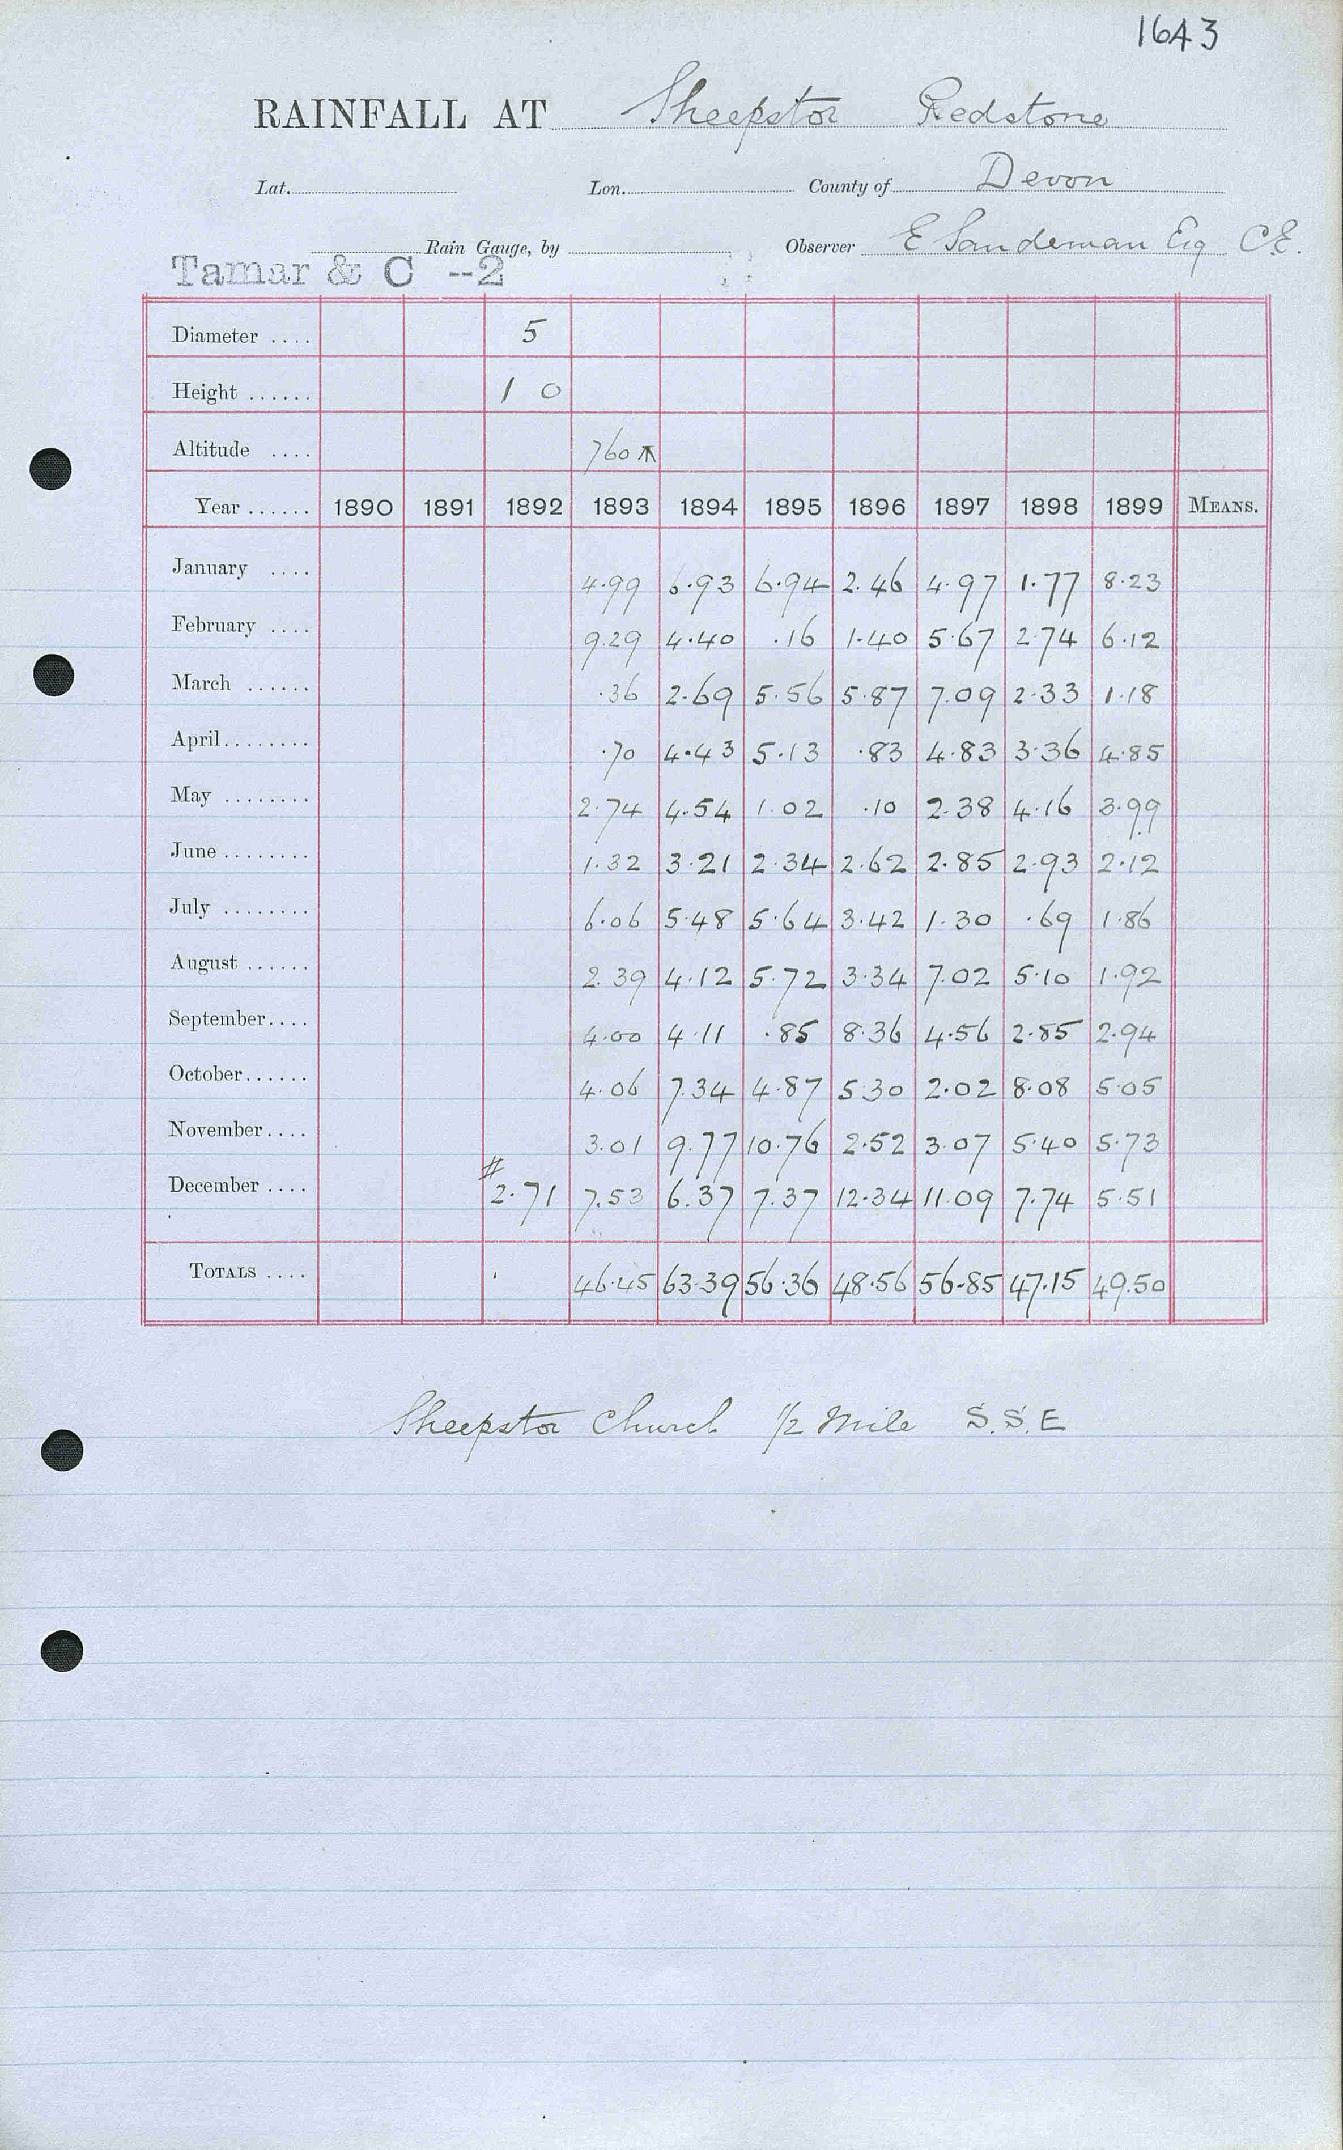 1643
RAINFALL AT Sheepstor Redstone
Lat. Lon. County of Devon
Rain Gauge, by Observer E Sandeman Esq C.E.
Tamar & C --2
Diameter .... 5
Height ...... 1 0
Altitude .... 760
Year ...... 1890 1891 1892 1893 1894 1895 1896 1897 1898 1899 MEANS.
January .... 4.99 6.93 6.94 2.46 4.97 1.77 8.23
February .... 9.29 4.40 .16 1.40 5.67 2.74 6.12
March ...... .36 2.69 5.56 5.87 7.09 2.33 1.18
April ........ .70 4.43 5.13 .83 4.83 3.36 4.85
May ........ 2.74 4.54 1.02 .10 2.38 4.16 3.99
June ........ 1.32 3.21 2.34 2.62 2.85 2.93 2.12
July ........ 6.06 5.48 5.64 3.42 1.30 .69 1.86
August ...... 2.39 4.12 5.72 3.34 7.02 5.10 1.92
September .... 4.00 4.11 .85 8.36 4.56 2.85 2.94
October ...... 4.06 7.34 4.87 5.30 2.02 8.08 5.05
November .... 3.01 9.77 10.76 2.52 3.07 5.40 5.73
December .... # 2.71 7.53 6.37 7.37 12.34 11.09 7.74 5.51
TOTALS .... 46.45 63.39 56.36 48.56 56.85 47.15 49.50
Sheepstor Church 1/2 Mile S.S.E